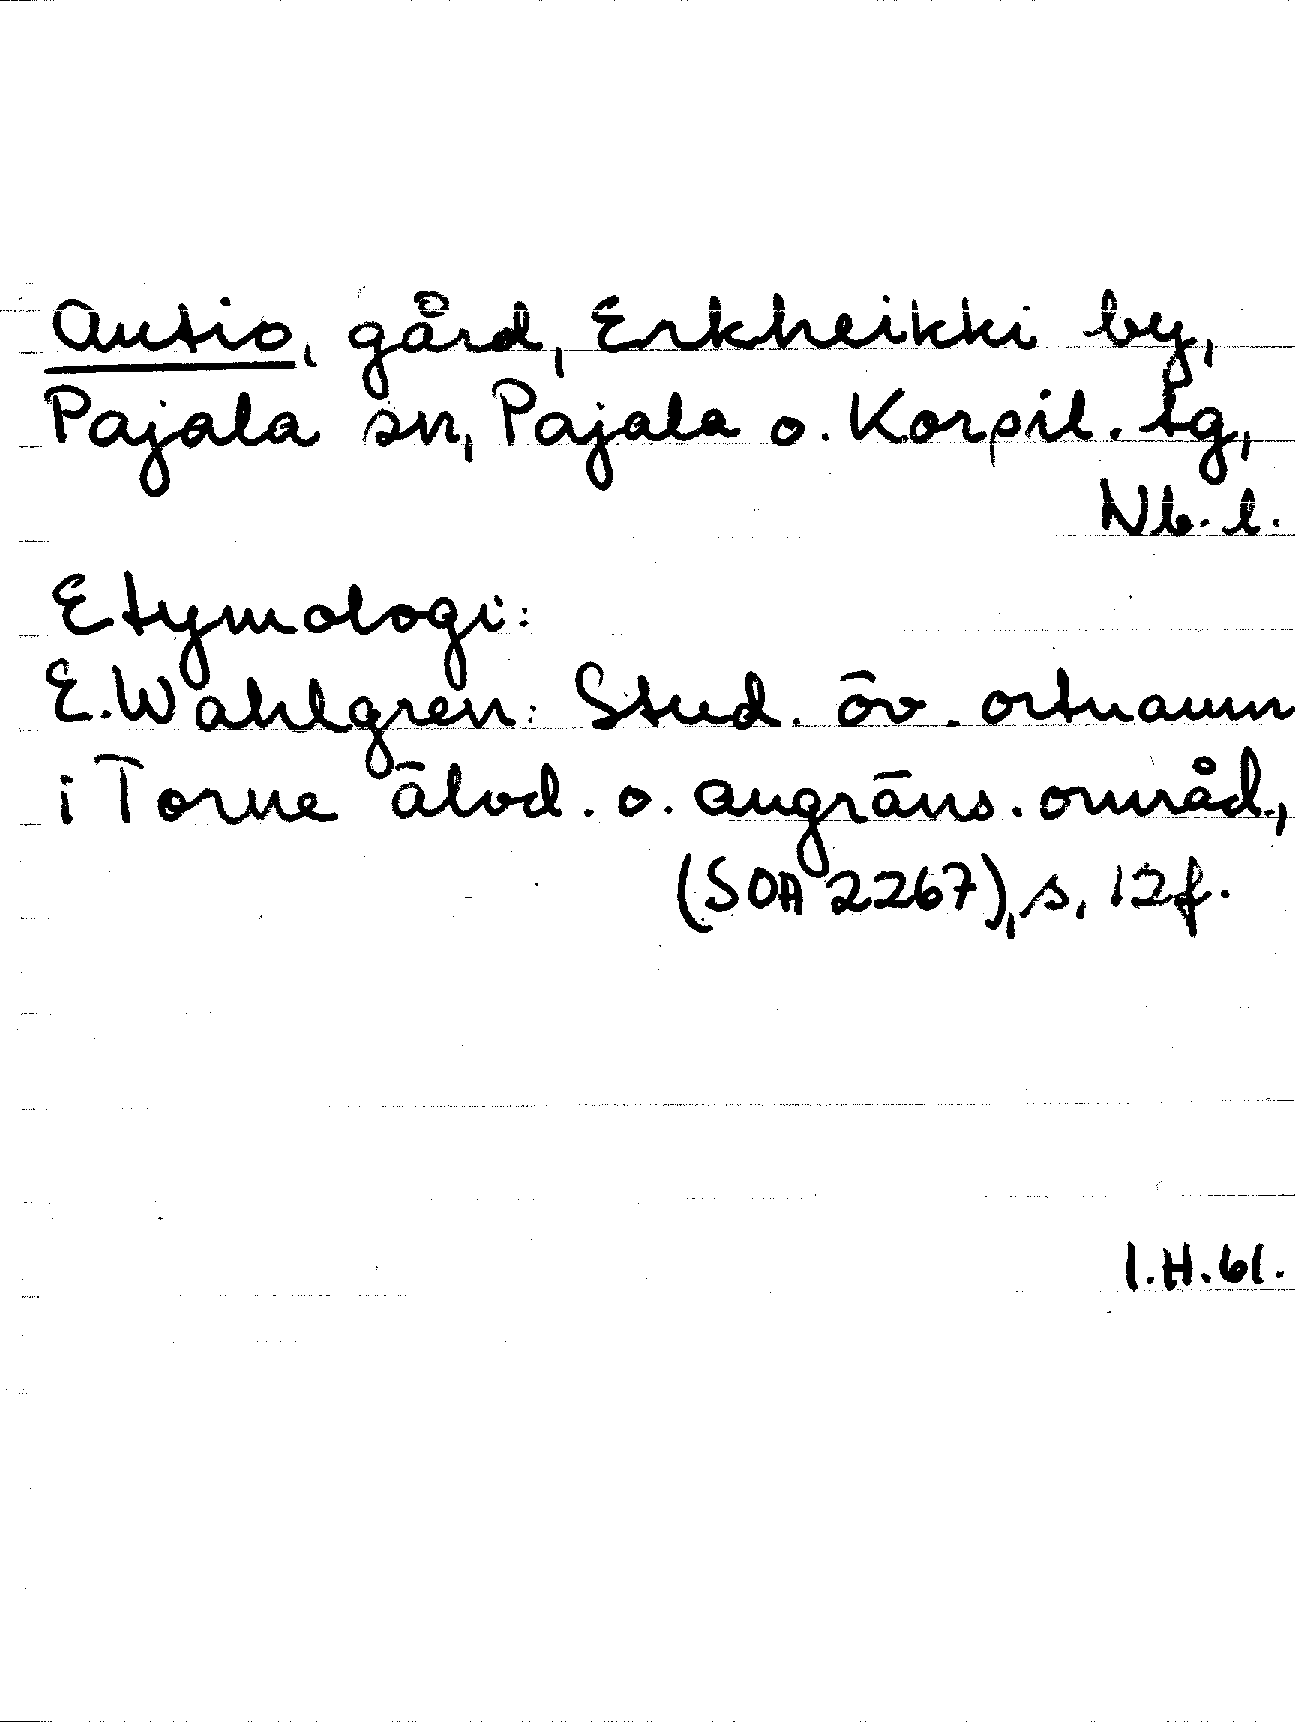 Autio, gård, Erkheikki by,
Pajala sn, Pajala o. Korpil. tg,
Nb. l.
Etymologi:
E. Wahlgren: Stud. öv. ortnamn
i Torne älvd. o. angräns. områd.,
(SOA 2267), s. 12f.
I.H.61.